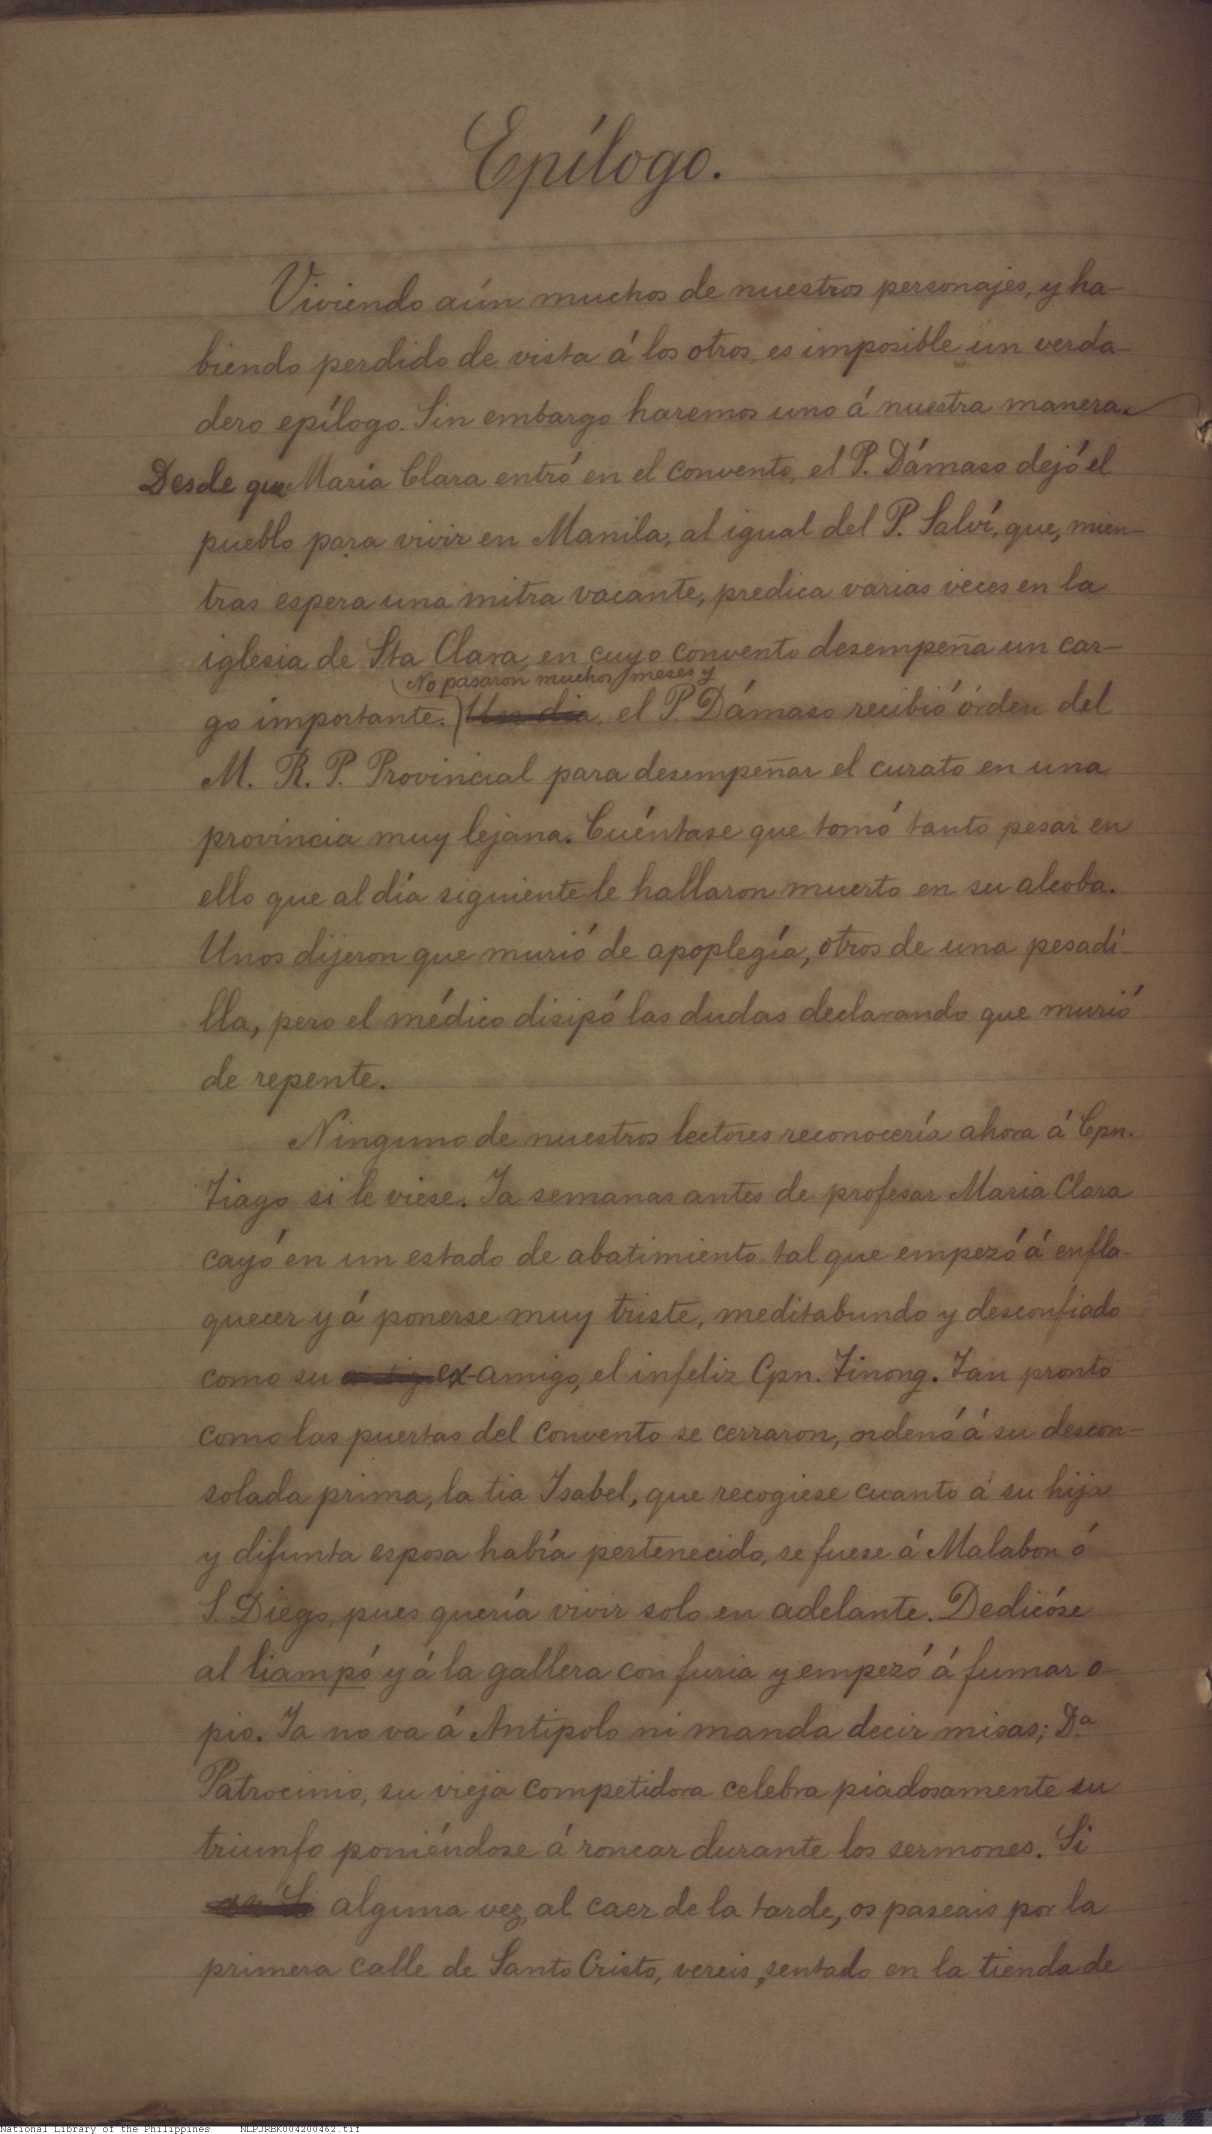 Epílogo.
Viviendo aún muchos de nuestros personajes, y ha-
biendo perdido de vista á los otros, es imposible un verda-
dero epílogo. Sin embargo haremos uno á nuestra manera.
Desde que María Clara entró en el convento, el P. Dámaso dejó el
pueblo para vivir en Manila, al igual del P. Salví, que, mien-
tras espera una mitra vacante, predica varias veces en la
iglesia de Sta Clara, en cuyo convento desempeña un car-
No pasaron muchos meses y
go importante. Un dia el P. Dámaso recibió órden del
M. R. P. Provincial para desempeñar el curato en una
provincia muy lejana. Cuéntase que tomó tanto pesar en
ello que al día siguiente le hallaron muerto en su alcoba.
Unos dijeron que murió de apoplegía, otros de una pesadi-
lla, pero el médico disipó las dudas declarando que murió
de repente.
Ninguno de nuestros lectores reconocería ahora á Cpn.
Tiago si le viese. Ya semanas antes de profesar Maria Clara
cayó en un estado de abatimiento tal que empezó á enfla-
quecer y á ponerse muy triste, meditabundo y desconfiado
como su ex-amigo, el infeliz Cpn. Tinong. Tan pronto
como las puertas del convento se cerraron, ordenó á su descon-
solada prima, la tia Isabel, que recogiese cuanto á su hija
y difunta esposa había pertenecido, se fuese á Malabon ó
S. Diego, pues quería vivir solo en adelante. Dedicóse
al liampó y á la gallera con furia y empezó á fumar o-
pio. Ya no va á Antipolo ni manda decir misas; D.ª
Patrocinio, su vieja competidora celebra piadosamente su
triunfo poniéndose á roncar durante los sermones. Si
alguna vez, al caer de la tarde, os paseais por la
primera calle de Santo Cristo, vereis, sentado en la tienda de
National Library of the Philippines NLPJRBK004200462.tif